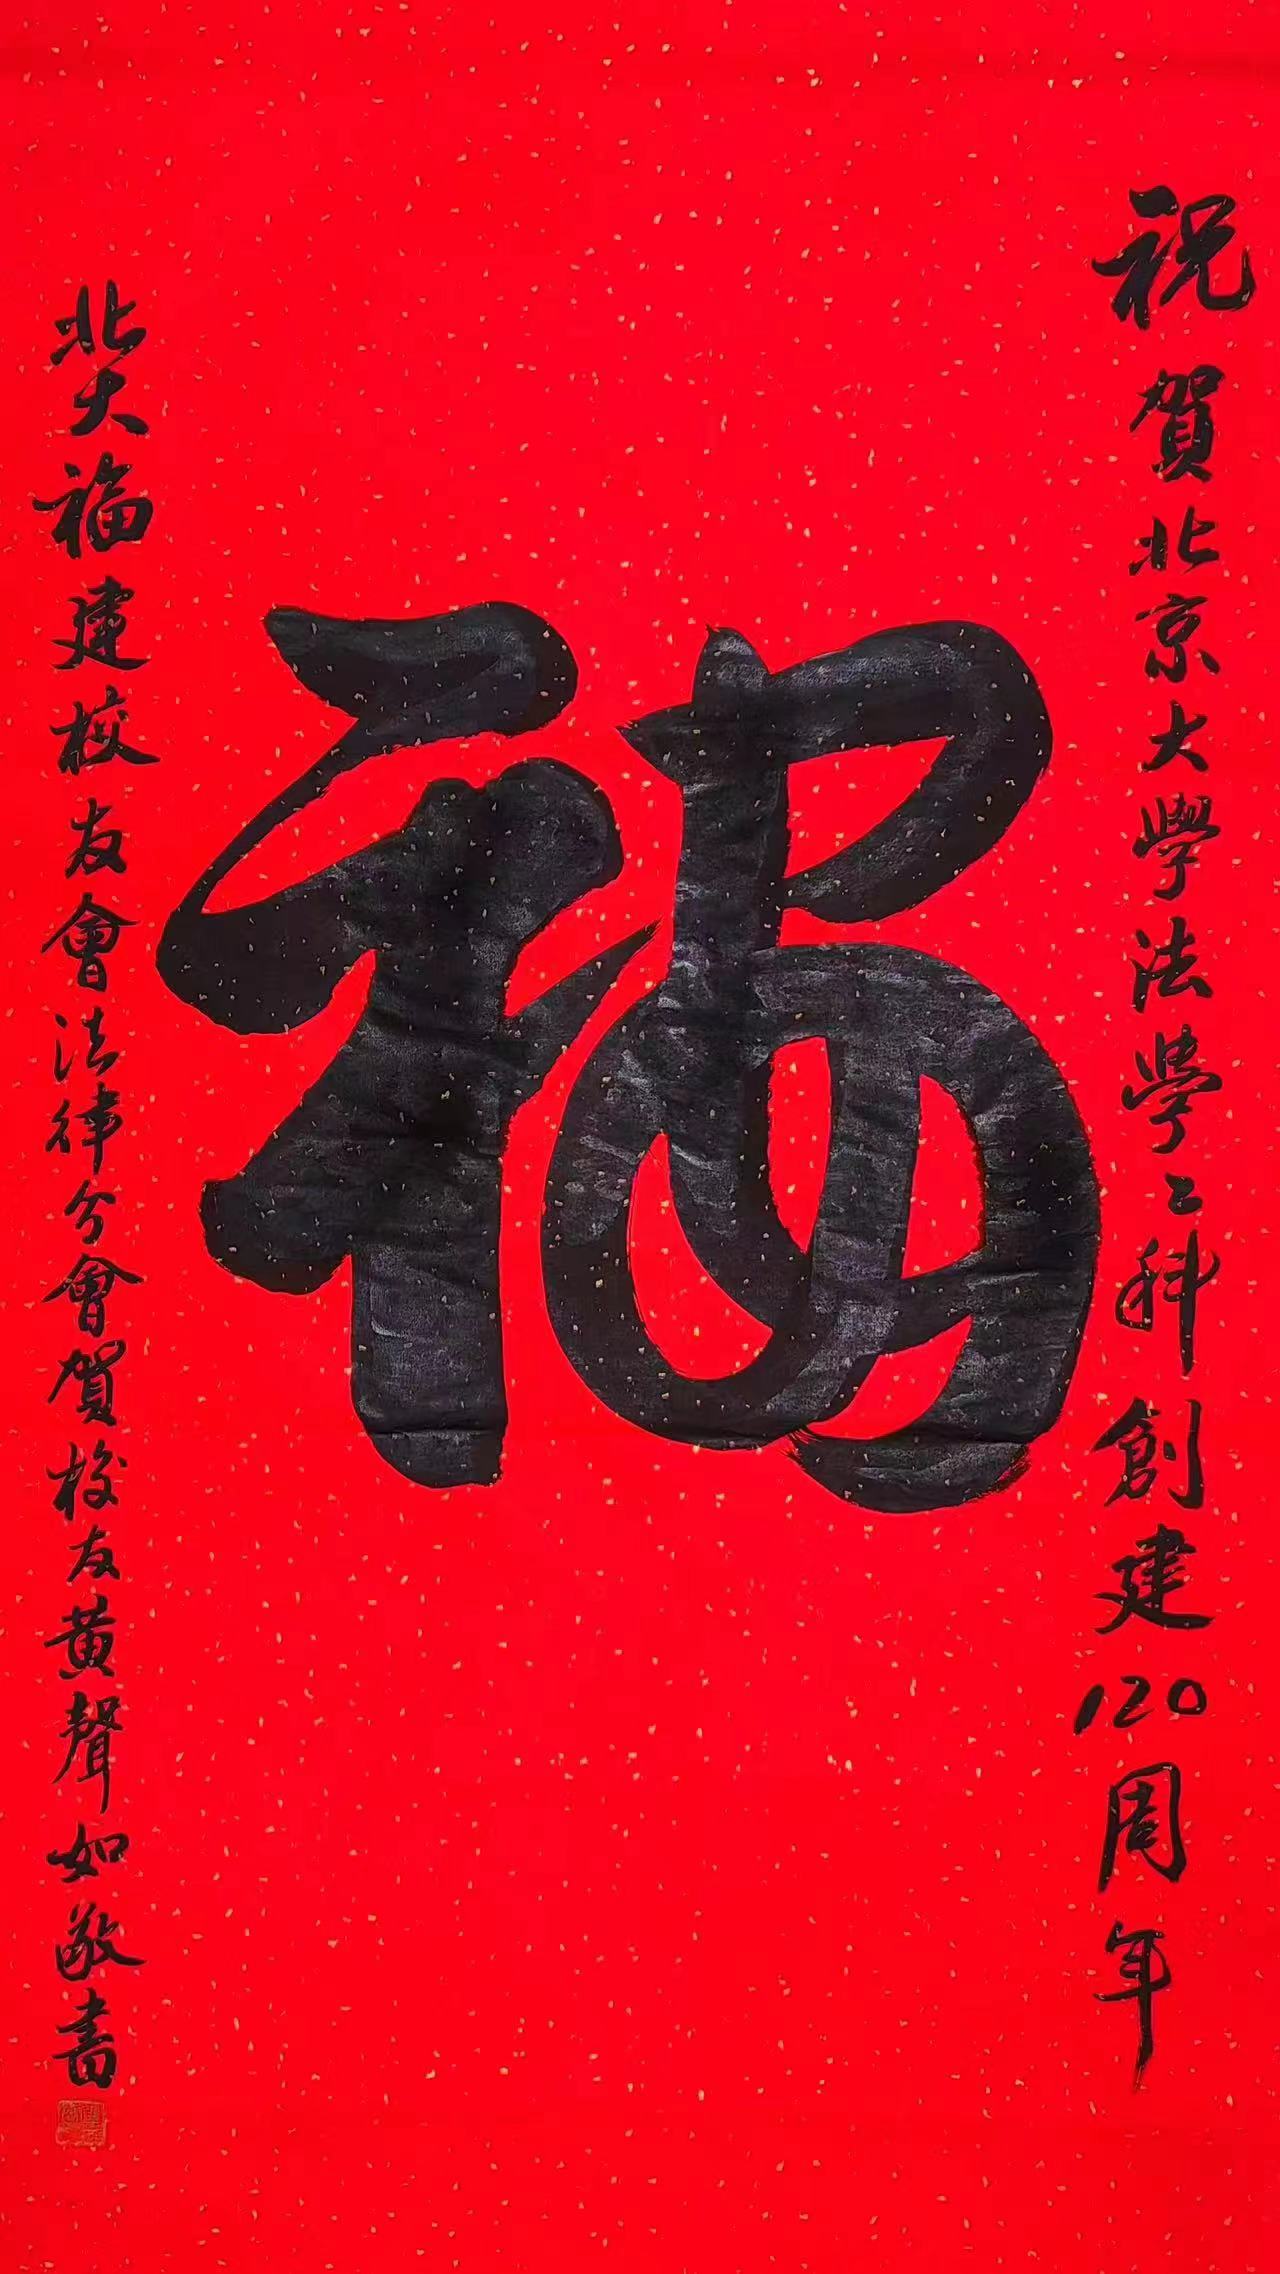 祝賀北京大學法學〻科創建120周年
福
北大福建校友會法律分會賀校友黄聲如敬書